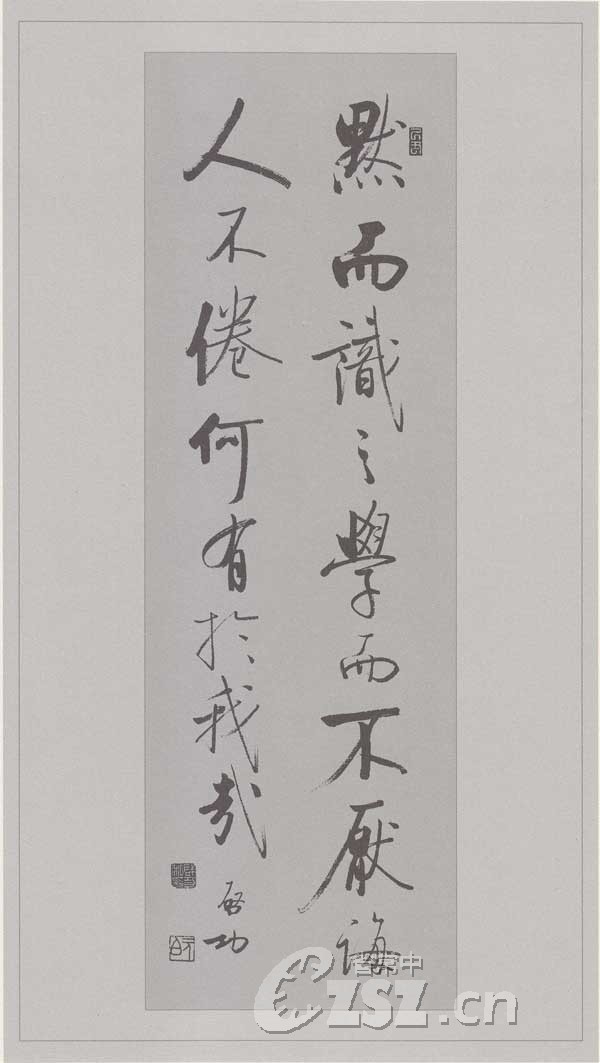 默而識之學而不厭誨
人不倦何有於我哉
啟功
中常書
ZSZ.cn